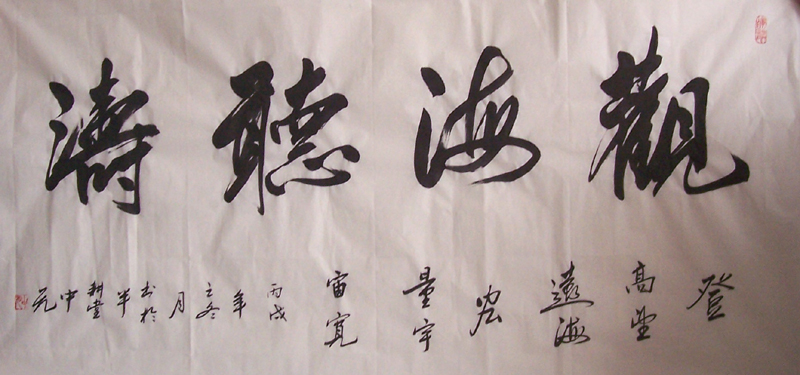 觀海聽濤
登高望遠海宏量宇宙寬
丙戌年立冬月书於半耕堂中元